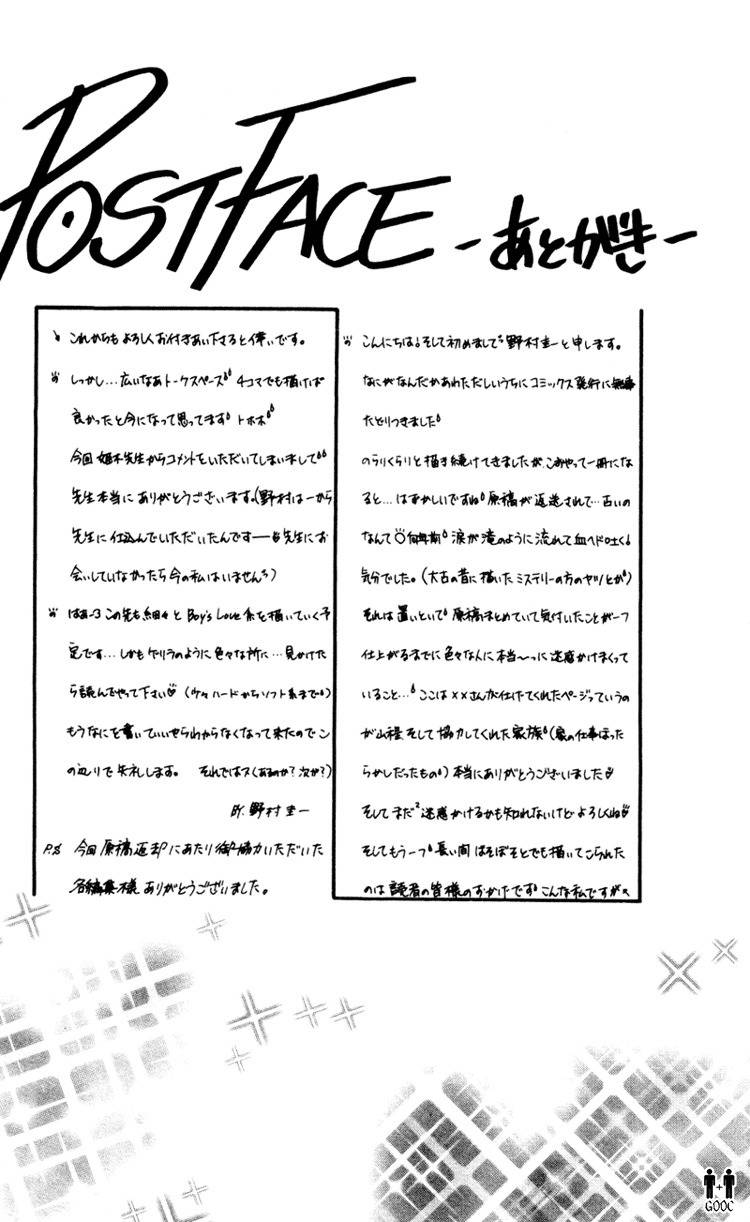 POSTFACE
-あとがき-
こんにちは そして初めまして 野村圭一と申します。
なにがなんだかあわただしいうちにコミックス発行に無事
たどりつきました
のらりくらりと描き続けてきましたが、こおやって一冊にな
ると…はずかしいですね 原稿が返送されて…古いの
なんて 何年期 涙が滝のように流れて血ヘド吐く
気分でした。(太古の昔に描いたミステリーの方のヤツとか)
それは置いといて 原稿まとめていて気付いたことが一つ
仕上がるまでに色々な人に本当〜っに迷惑かけまくって
いること… ここは××さんが仕上げてくれたページっていうの
が山程 そして協力してくれた家族 (家の仕事ほった
らかしだったもの) 本当にありがとうございました
そしてまだ² 迷惑かけるかも知れないけどよろしくね
そしてもう一つ 長い間ほそぼそとでも描いてこられた
のは読者の皆様のおかげです こんな私ですが
これからもよろしくお付きあい下さると倖いです。
しっかし…広いなあトークスペース 4コマでも描けば
良かったと今になって思ってます トホホ
今回 先生からコメントをいただいてしまいまして
先生本当にありがとうございます。(野村は一から
先生に仕込んでいただいたんですー 先生にお
会いしていなかったら今の私はいません)
はあ-3 この先も細々とBoy's Love系を描いていく予
定です…しかもゲリラのように色々な所に…見かけた
ら読んでやって下さい ( ハードからソフト系まで)
もうなにを書いていいやらわからなくなって来たのでこ
の辺りで失礼します。 それではスく(あるのか?次が?)
BY. 野村圭一
P.S 今回原稿返却にあたり御協力いただいた
各編集様ありがとうございました。
GOOC